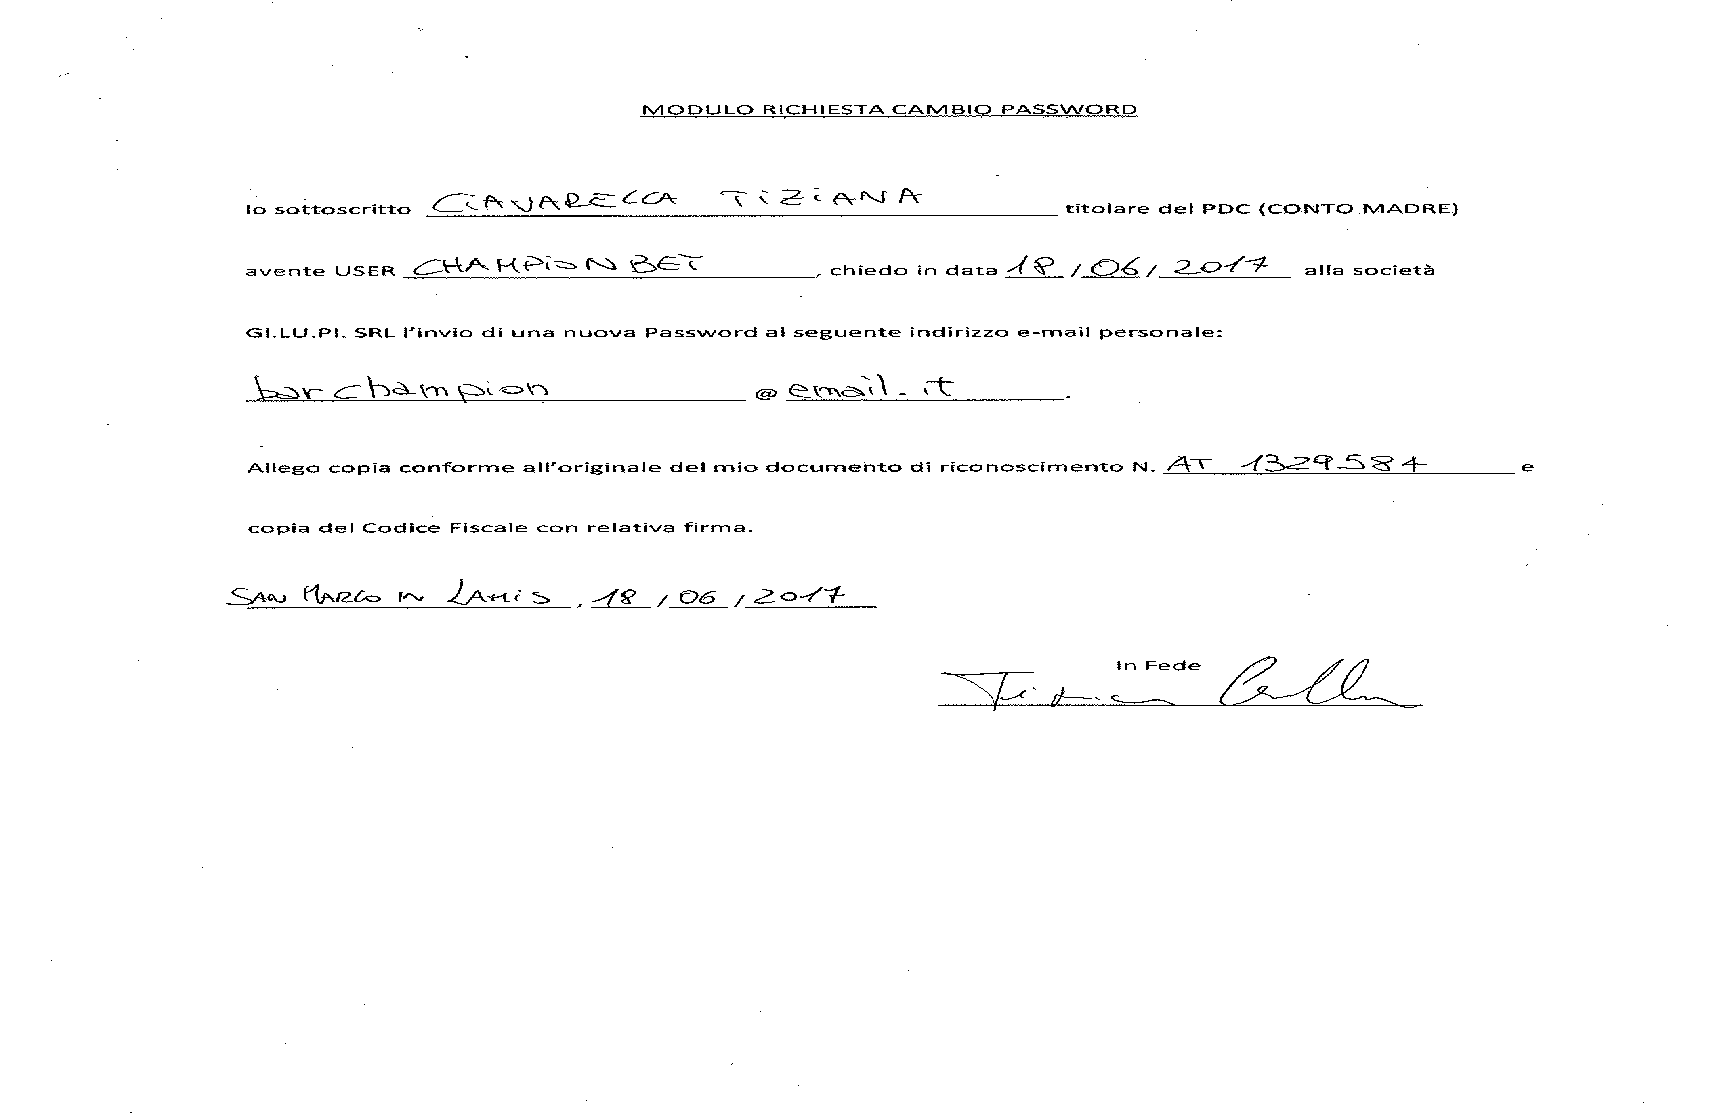 MODULO RICHIESTA CAMBIO PASSWORD
Io sottoscritto CIAVARELLA TIZIANA titolare del PDC (CONTO MADRE)
avente USER CHAMPION BET, chiedo in data 18/06/2017 alla società
GI.LU.PI. SRL l'invio di una nuova Password al seguente indirizzo e-mail personale:
barchampion @ email.it.
Allego copia conforme all'originale del mio documento di riconoscimento N. AT 1329584 e
copia del Codice Fiscale con relativa firma.
SAN MARCO IN LAMIS, 18/06/2017
In Fede